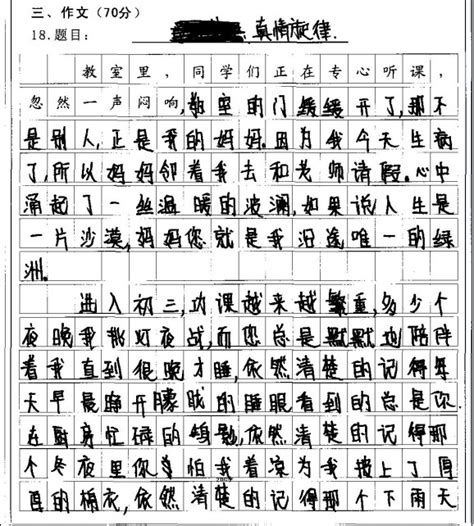 三、作文（70分）
18.题目： 真情旋律.
教室里，同学们正在专心听课，
忽然一声闷响，教室的门缓缓开了，那不
是别人，正是我的妈妈。因为我今天生病
了，所以妈妈邻着我去和老师请假。心中
涌起了一丝温暖的波澜，如果说人生是
一片沙漠，妈妈您就是我沿途唯一的绿
洲。
进入初三，功课越来越繁重，多少个
夜晚我挑灯夜战，而您总是默默地陪伴
着我直到很晚才睡，依然清楚的记得每
天早晨睁开朦胧的睡眼看到的总是你
在厨房忙碌的身影，依然清楚的记得那
个冬夜里你怕我着凉为我披上了厚
厚的棉衣，依然清楚的记得那个下雨天